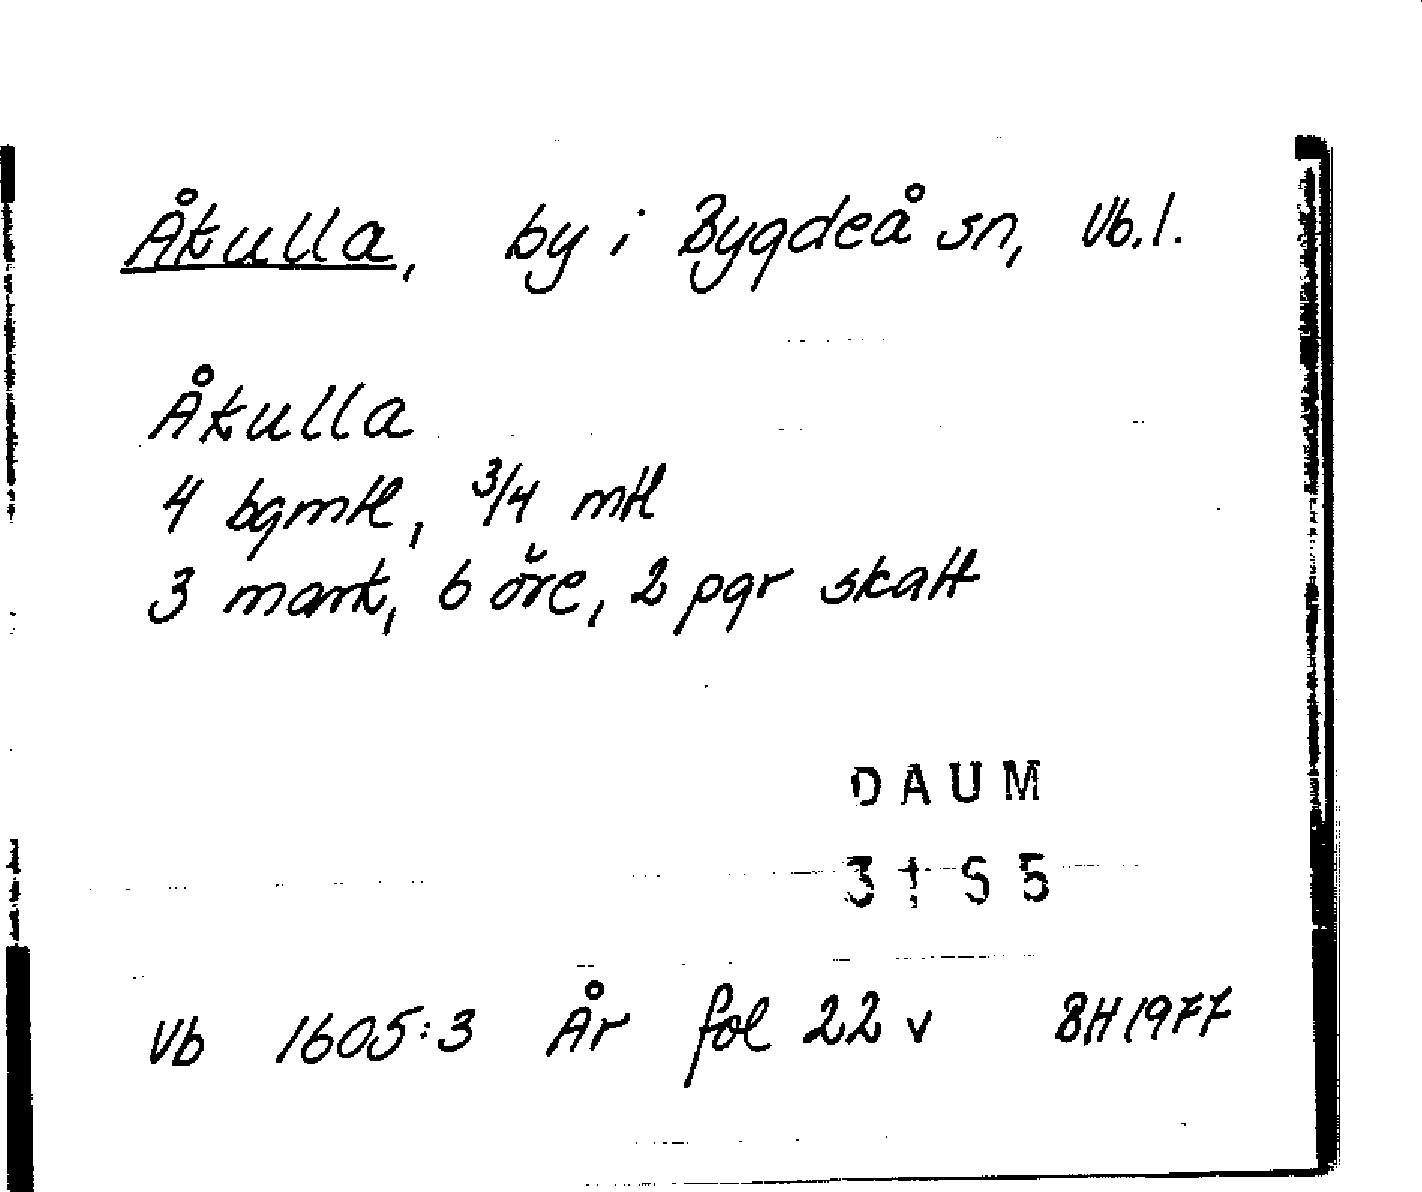 Åkulla, by i Bygdeå sn, Vb. l.
Åkulla
4 bgmtl, 3/4 mtl
3 mark, 6 öre, 2 pgr skatt
DAUM
3155
Vb 1605:3 År fol 22 v BH 1977